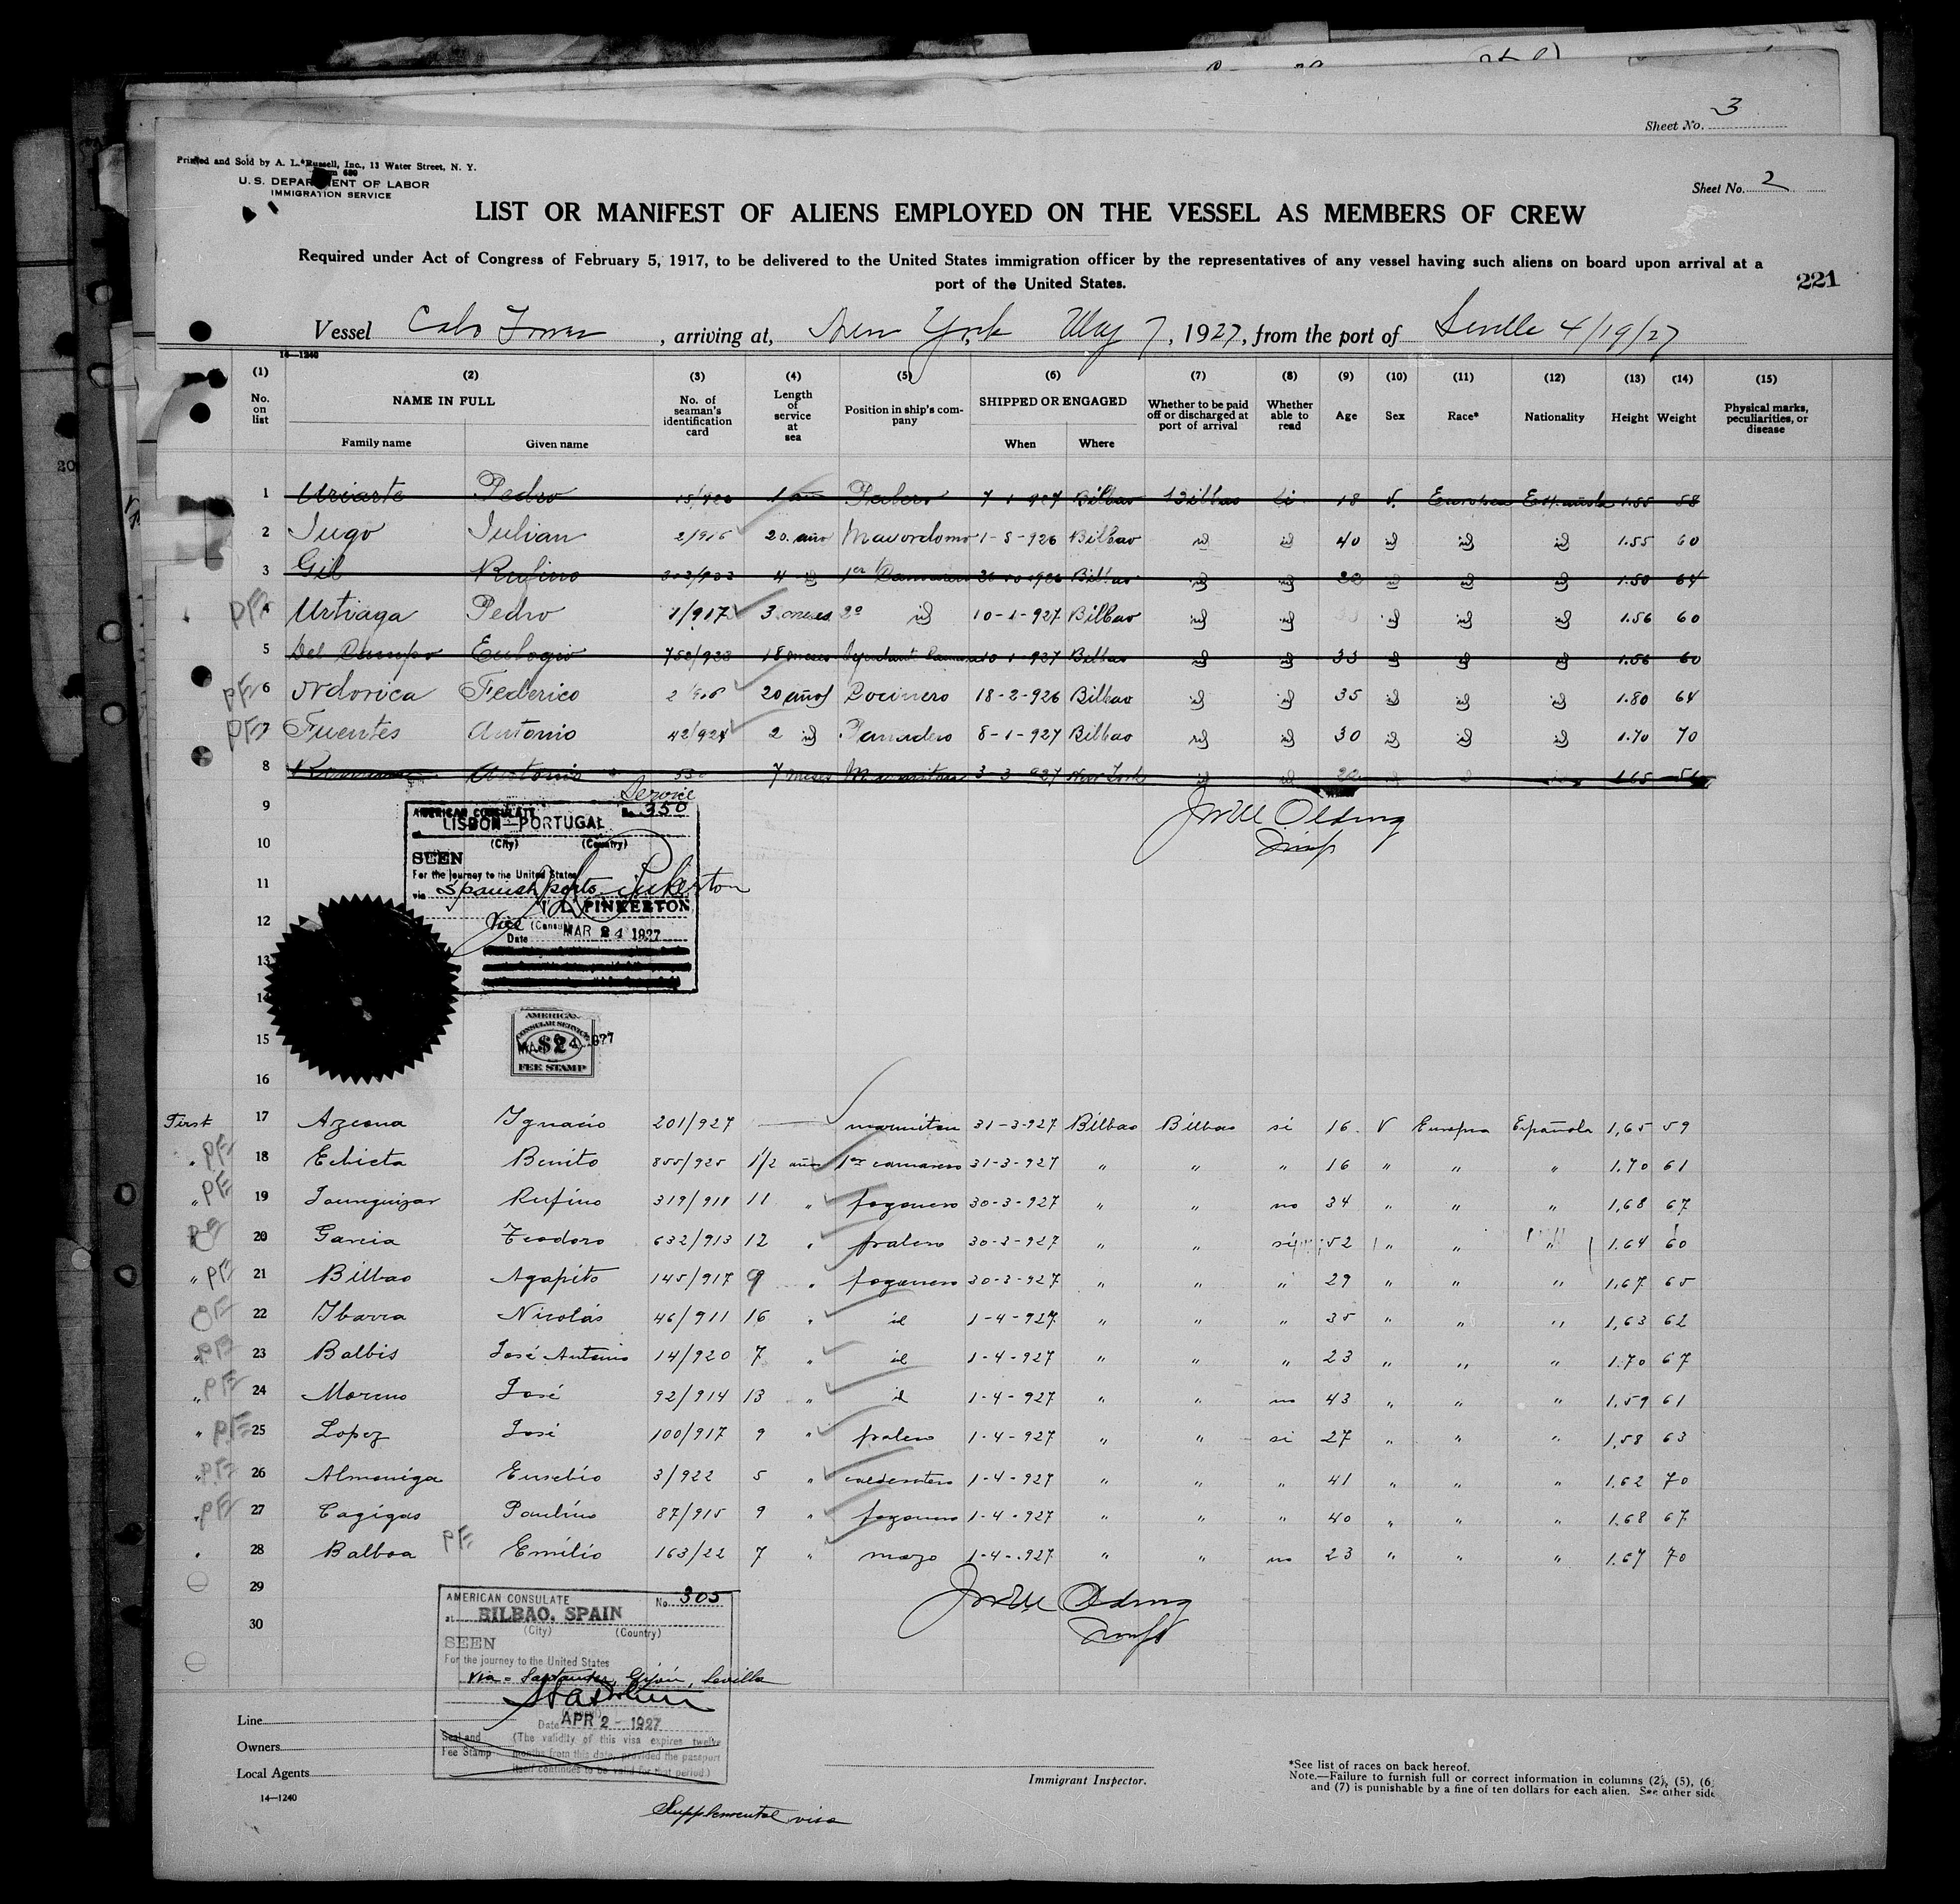 Sheet No. 3
Printed and Sold by A. L. Russell, Inc., 13 Water Street, N. Y.
U. S. DEPARTMENT OF LABOR
IMMIGRATION SERVICE
Sheet No. 2
LIST OR MANIFEST OF ALIENS EMPLOYED ON THE VESSEL AS MEMBERS OF CREW
Required under Act of Congress of February 5, 1917, to be delivered to the United States immigration officer by the representatives of any vessel having such aliens on board upon arrival at a
port of the United States.
221
Vessel Cabo Torres, arriving at, New York May 7, 1927, from the port of Seville 4/19/27
14—1240
(1) (2) (3) (4) (5) (6) (7) (8) (9) (10) (11) (12) (13) (14) (15)
No. on list NAME IN FULL No. of seaman's identification card Length of service at sea Position in ship's company SHIPPED OR ENGAGED Whether to be paid off or discharged at port of arrival Whether able to read Age Sex Race* Nationality Height Weight Physical marks, peculiarities, or disease
Family name Given name When Where
1 Uriarte Pedro 1 año Palero 7-1-927 Bilbao Bilbao si 18 V. Europea Española 1.55 58
2 Jugo Julian 2/916 20 año Mayordomo 1-8-926 Bilbao id id 40 id id id 1.55 60
3 Gil Rufino 4 id 1er Camarero Bilbao id id id id id 1.50 64
PE 4 Urtiaga Pedro 1/917 3 meses 2º id 10-1-927 Bilbao id id id id id 1.56 60
5 Del Campo Eulogio 18 meses Ayudante Camara 10-1-927 Bilbao id id 33 id id id 1.56 60
PE 6 Federico 20 años Cocinero 18-2-926 Bilbao id id 35 id id id 1.80 64
PE 7 Fuentes Antonio 42/924 2 id Panadero 8-1-927 Bilbao id id 30 id id id 1.70 70
8 Antonio 7 meses Marmiton 3-3-927 New York id id 1.65
Service
9
AMERICAN CONSULATE No. 350
LISBON—PORTUGAL
(City) (Country)
10
SEEN
For the journey to the United States
11
via Spanish ports
12
PINKERTON
Vice (Consul)
Date MAR 24 1927
13
14
AMERICAN
CONSULAR SERVICE
15
$2
MAR 24 1927
FEE STAMP
16
First 17 Azcona Ignacio 201/927 — marmiton 31-3-927 Bilbao Bilbao si 16 V Europea Española 1,65 59
" PE 18 Echieta Benito 855/925 1 1/2 años 1er camarero 31-3-927 " " " 16 " " " 1.70 61
" PE 19 Rufino 319/911 11 " fogonero 30-3-927 " " no 34 " " " 1,68 67
20 Garcia Teodoro 632/913 12 " palero 30-3-927 " " si 52 " " " 1.64 60
" PE 21 Bilbao Agapito 145/917 9 " fogonero 30-3-927 " " " 29 " " " 1,67 65
22 Ibarra Nicolás 46/911 16 " id 1-4-927 " " " 35 " " " 1,63 62
" PE 23 Balbis José Antonio 14/920 7 " id 1-4-927 " " " 23 " " " 1.70 67
" PE 24 Moreno José 92/914 13 " id 1-4-927 " " no 43 " " " 1.59 61
" PE 25 Lopez José 100/917 9 " palero 1-4-927 " " si 27 " " " 1,58 63
" PE 26 Almoniga Eusebio 3/922 5 " calderetero 1-4-927 " " " 41 " " " 1,62 70
" PE 27 Cagigas Paulino 87/915 9 " fogonero 1-4-927 " " " 40 " " " 1.68 67
" 28 Balboa PE Emilio 163/22 7 " mozo 1-4-927 " " no 23 " " " 1.67 70
29
AMERICAN CONSULATE No. 305
at BILBAO, SPAIN
30
(City) (Country)
SEEN
For the journey to the United States
via = Santander, Gijón, Sevilla
Date APR 2 - 1927
Seal and Fee Stamp (The validity of this visa expires twelve months from this date, provided the passport itself continues to be valid for that period.)
Line
Owners
Local Agents
14—1240
Immigrant Inspector.
*See list of races on back hereof.
Note.—Failure to furnish full or correct information in columns (2), (5), (6)
and (7) is punishable by a fine of ten dollars for each alien. See other side
Supplemental visa